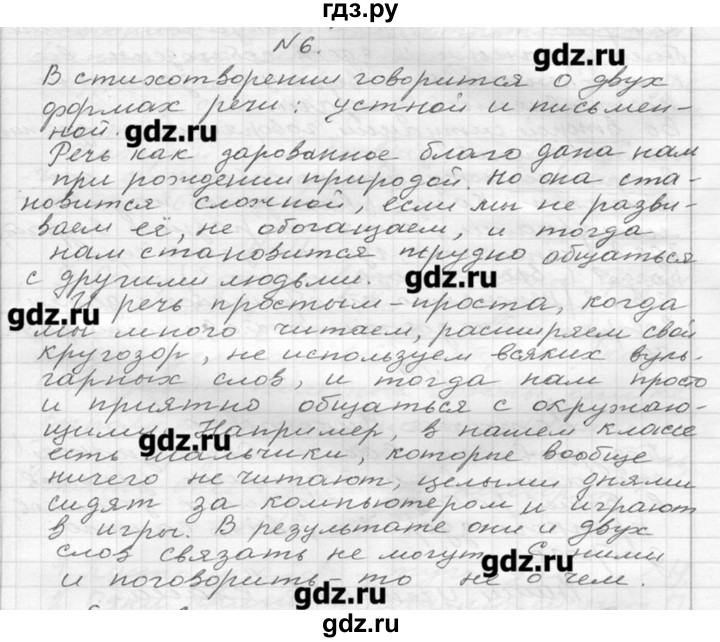 гдз.ру
N 6.
gdz.ru
В стихотворении говорится о двух
формах речи: устной и письмен-
ной.
gdz.ru
Речь как дарованное благо дана нам
при рождении природой. Но она ста-
новится сложной, если мы не разви-
ваем её, не обогащаем, и тогда
нам становится трудно общаться
с другими людьми.
gdz.ru
И речь простым-проста, когда
gdz.ru
мы много читаем, расширяем свой
кругозор, не используем всяких вуль-
гарных слов, и тогда нам просто
и приятно общаться с окружаю-
щими. Например, в нашем классе
gdz.ru
есть мальчики, которые вообще
ничего не читают, целыми днями
сидят за компьютером и играют
в игры. В результате они и двух
слов связать не могут. С ними
gdz.ru
и поговорить-то не о чем.
gdz.ru
гдз.ру